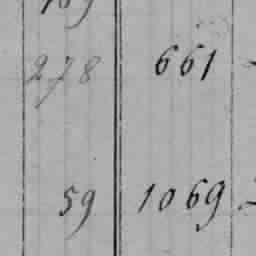 278 661
59 1069